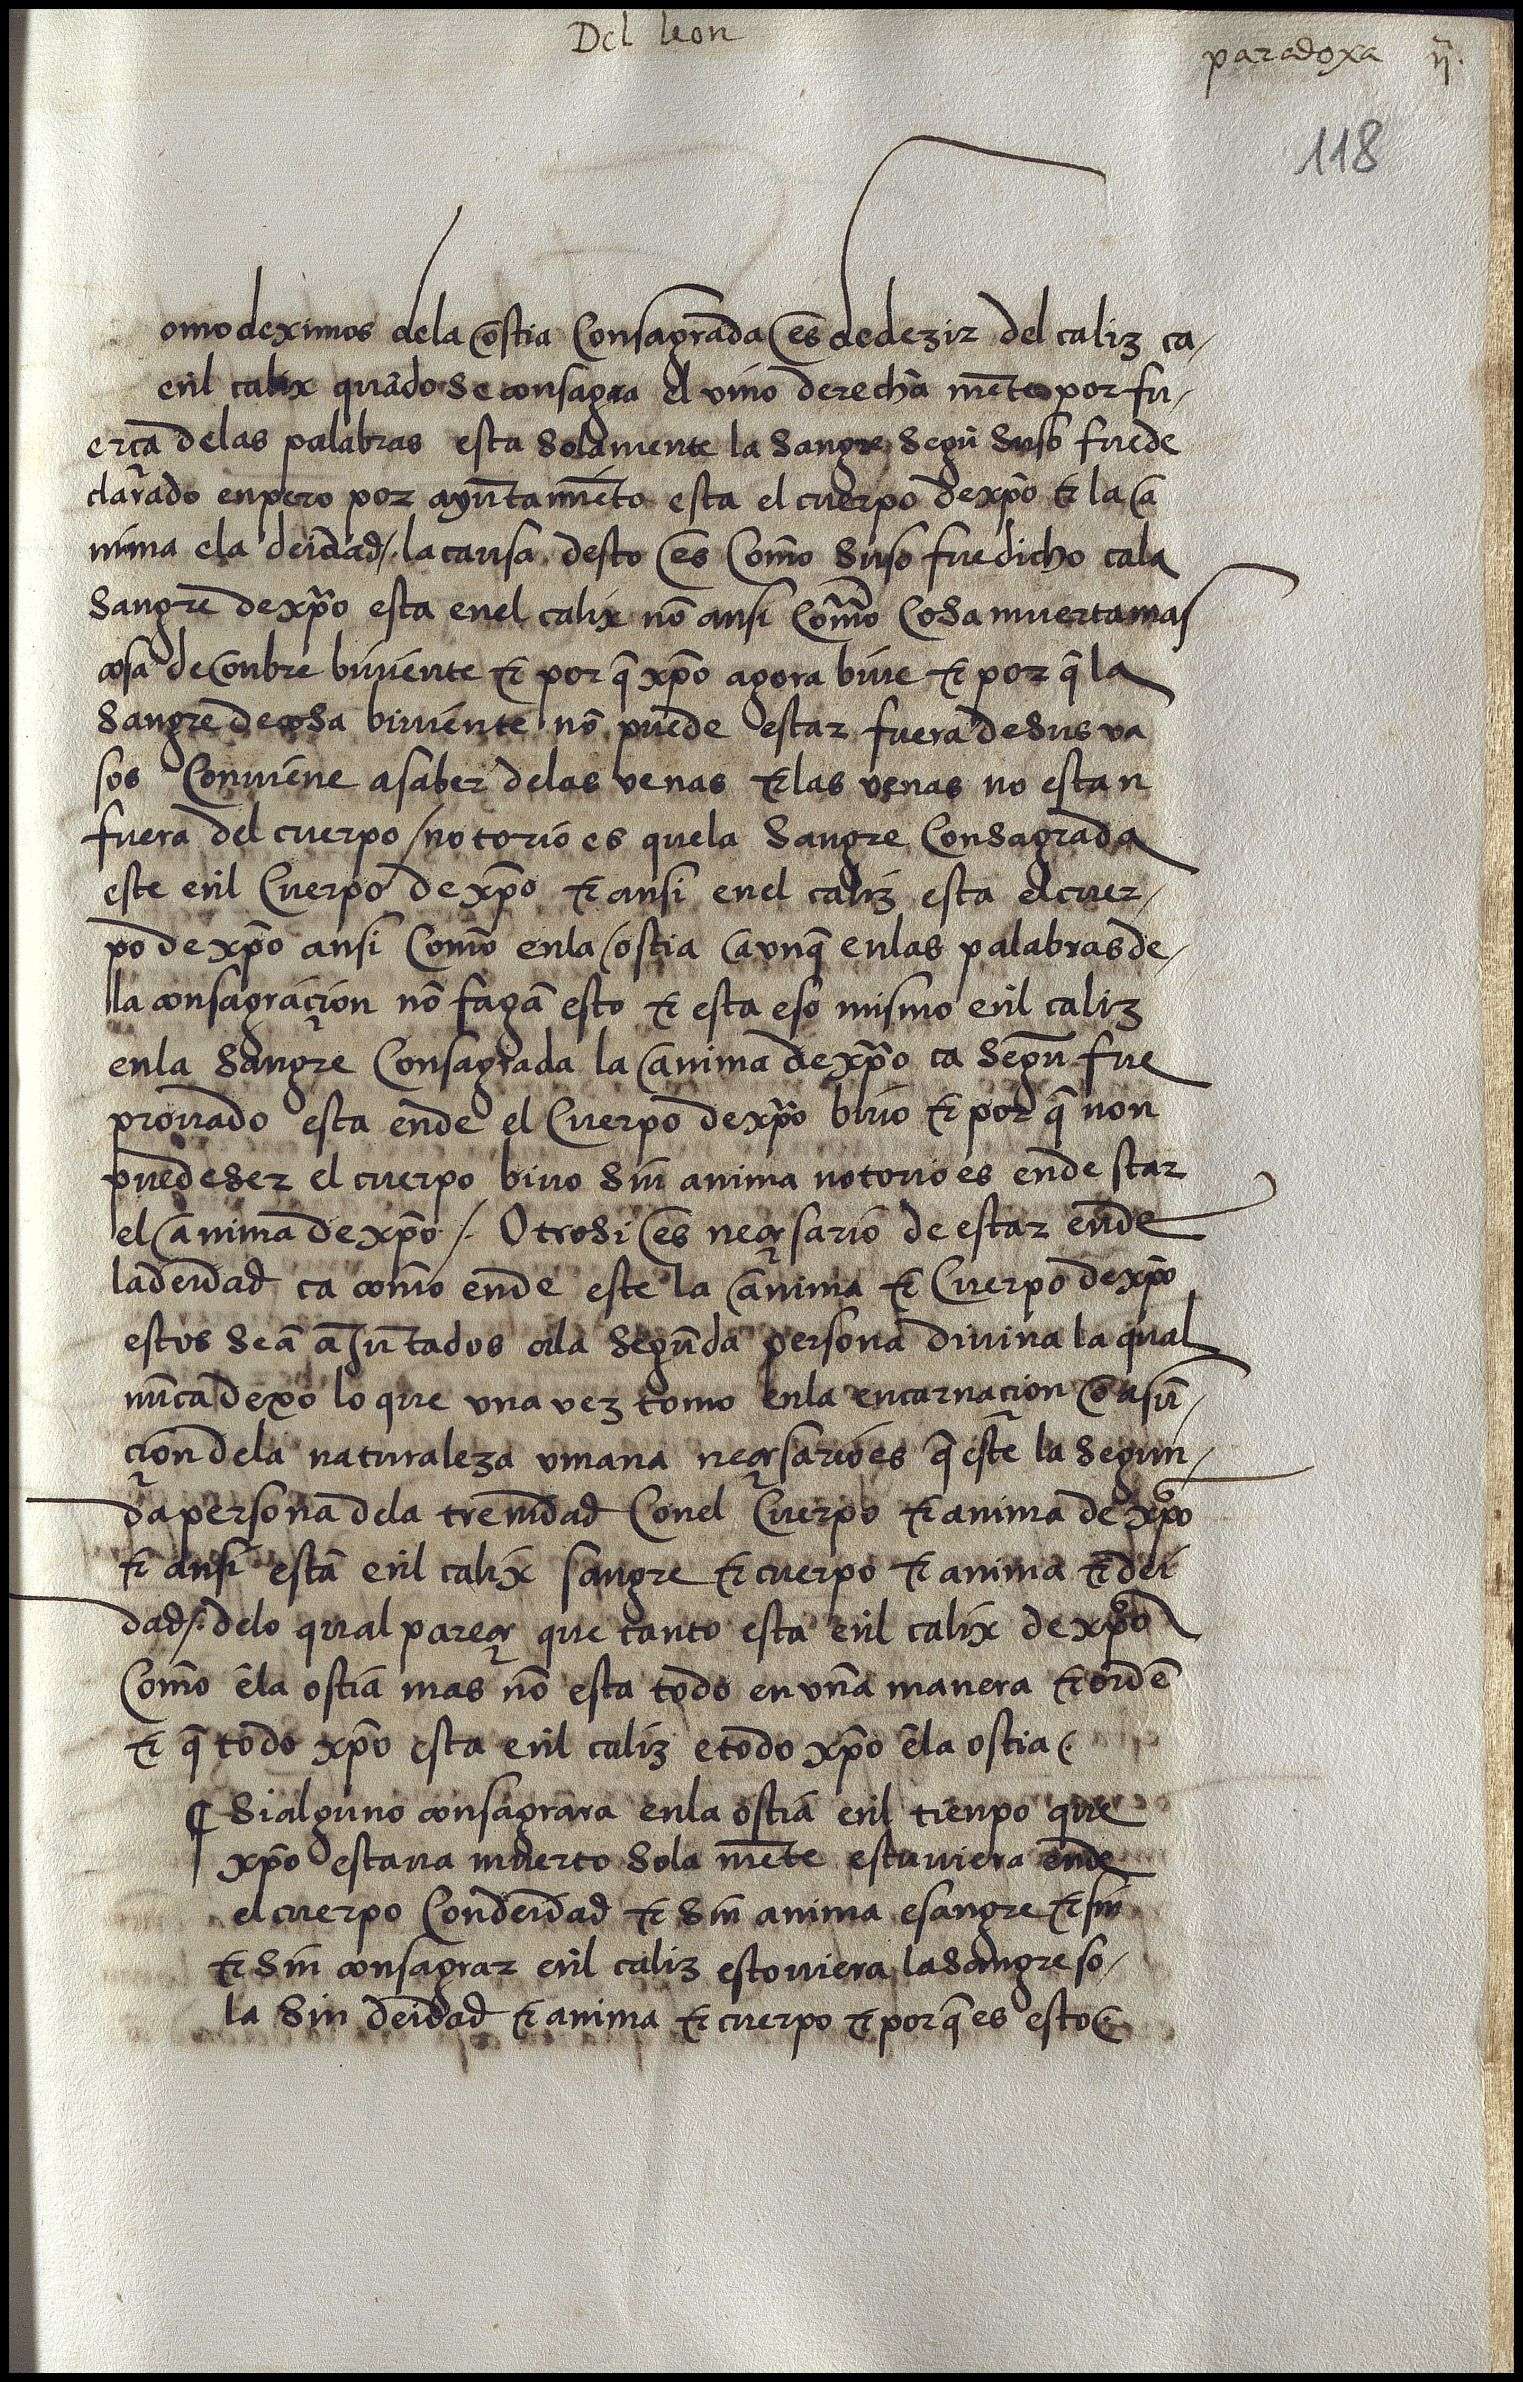 Del leon
paradoxa ij.
118
omo deximos dela ostia Consagrada es dedezir del caliz ca
enl calix quãdo se consagra el vino derecha mẽte por fu
erça delas palabras esta solamente la sangre segũ suso fue de
clarado enpero por ayũtamiẽto esta el cuerpo de xp̃o ⁊ la a
nima e la deidad /. la causa desto es Com̃o suso fue dicho ca la
sangre de xp̃o esta enel calix nõ ansi Com̃o Cosa muerta mas
cosa de onbre biuiente ⁊ por q̃ xp̃o agora biue ⁊ por q̃ la
sangre de cosa biuiente nõ puede estar fuera de sus va
sos Conuiene a saber delas venas ⁊ las venas no estan
fuera del cuerpo / notorio es que la sangre Consagrada
este enl Cuerpo de xp̃o ⁊ ansi enel caliz esta el cuer
po de xp̃o ansi Com̃o enla ostia aunq̃ en las palabras de
la consagraçion nõ fagã esto ⁊ esta eso mismo enl caliz
enla sangre Consagrada la anima de xp̃o ca segũ fue
prouado esta ende el Cuerpo de xp̃o biuo ⁊ por q̃ non
puede ser el cuerpo biuo sin anima notorio es ende star
el anima de xp̃o /. Otrosi es neçesario de estar ende
la deidad ca com̃o ende este la anima ⁊ Cuerpo de xp̃o
estos seã aJũtados ala segũda persona diuina la qual
nũca dexo lo que vna vez tomo enla encarnaçion o asũ
çion dela naturaleza vmana neçesario es q̃ este la segun
da persona dela trenidad Conel Cuerpo ⁊ anima de xp̃o
⁊ ansi estã enl calix sangre ⁊ cuerpo ⁊ anima ⁊ dei
dad /. delo qual pareçe que tanto esta enl calix de xp̃o
Com̃o ẽla ostia mas nõ esta todo en vna manera ⁊ ordẽ
⁊ q̃ todo xp̃o esta enl caliz e todo xp̃o ẽla ostia /.
¶ Si alguno consagrara enla ostia enl tienpo que
xp̃o estaua muerto sola mẽte estuuiera ende
el cuerpo Con deidad ⁊ sin anima e sangre ⁊ sin
⁊ sin consagrar enl caliz estouiera la sangre so
la sin deidad ⁊ anima ⁊ cuerpo ⁊ por q̃ es esto /.